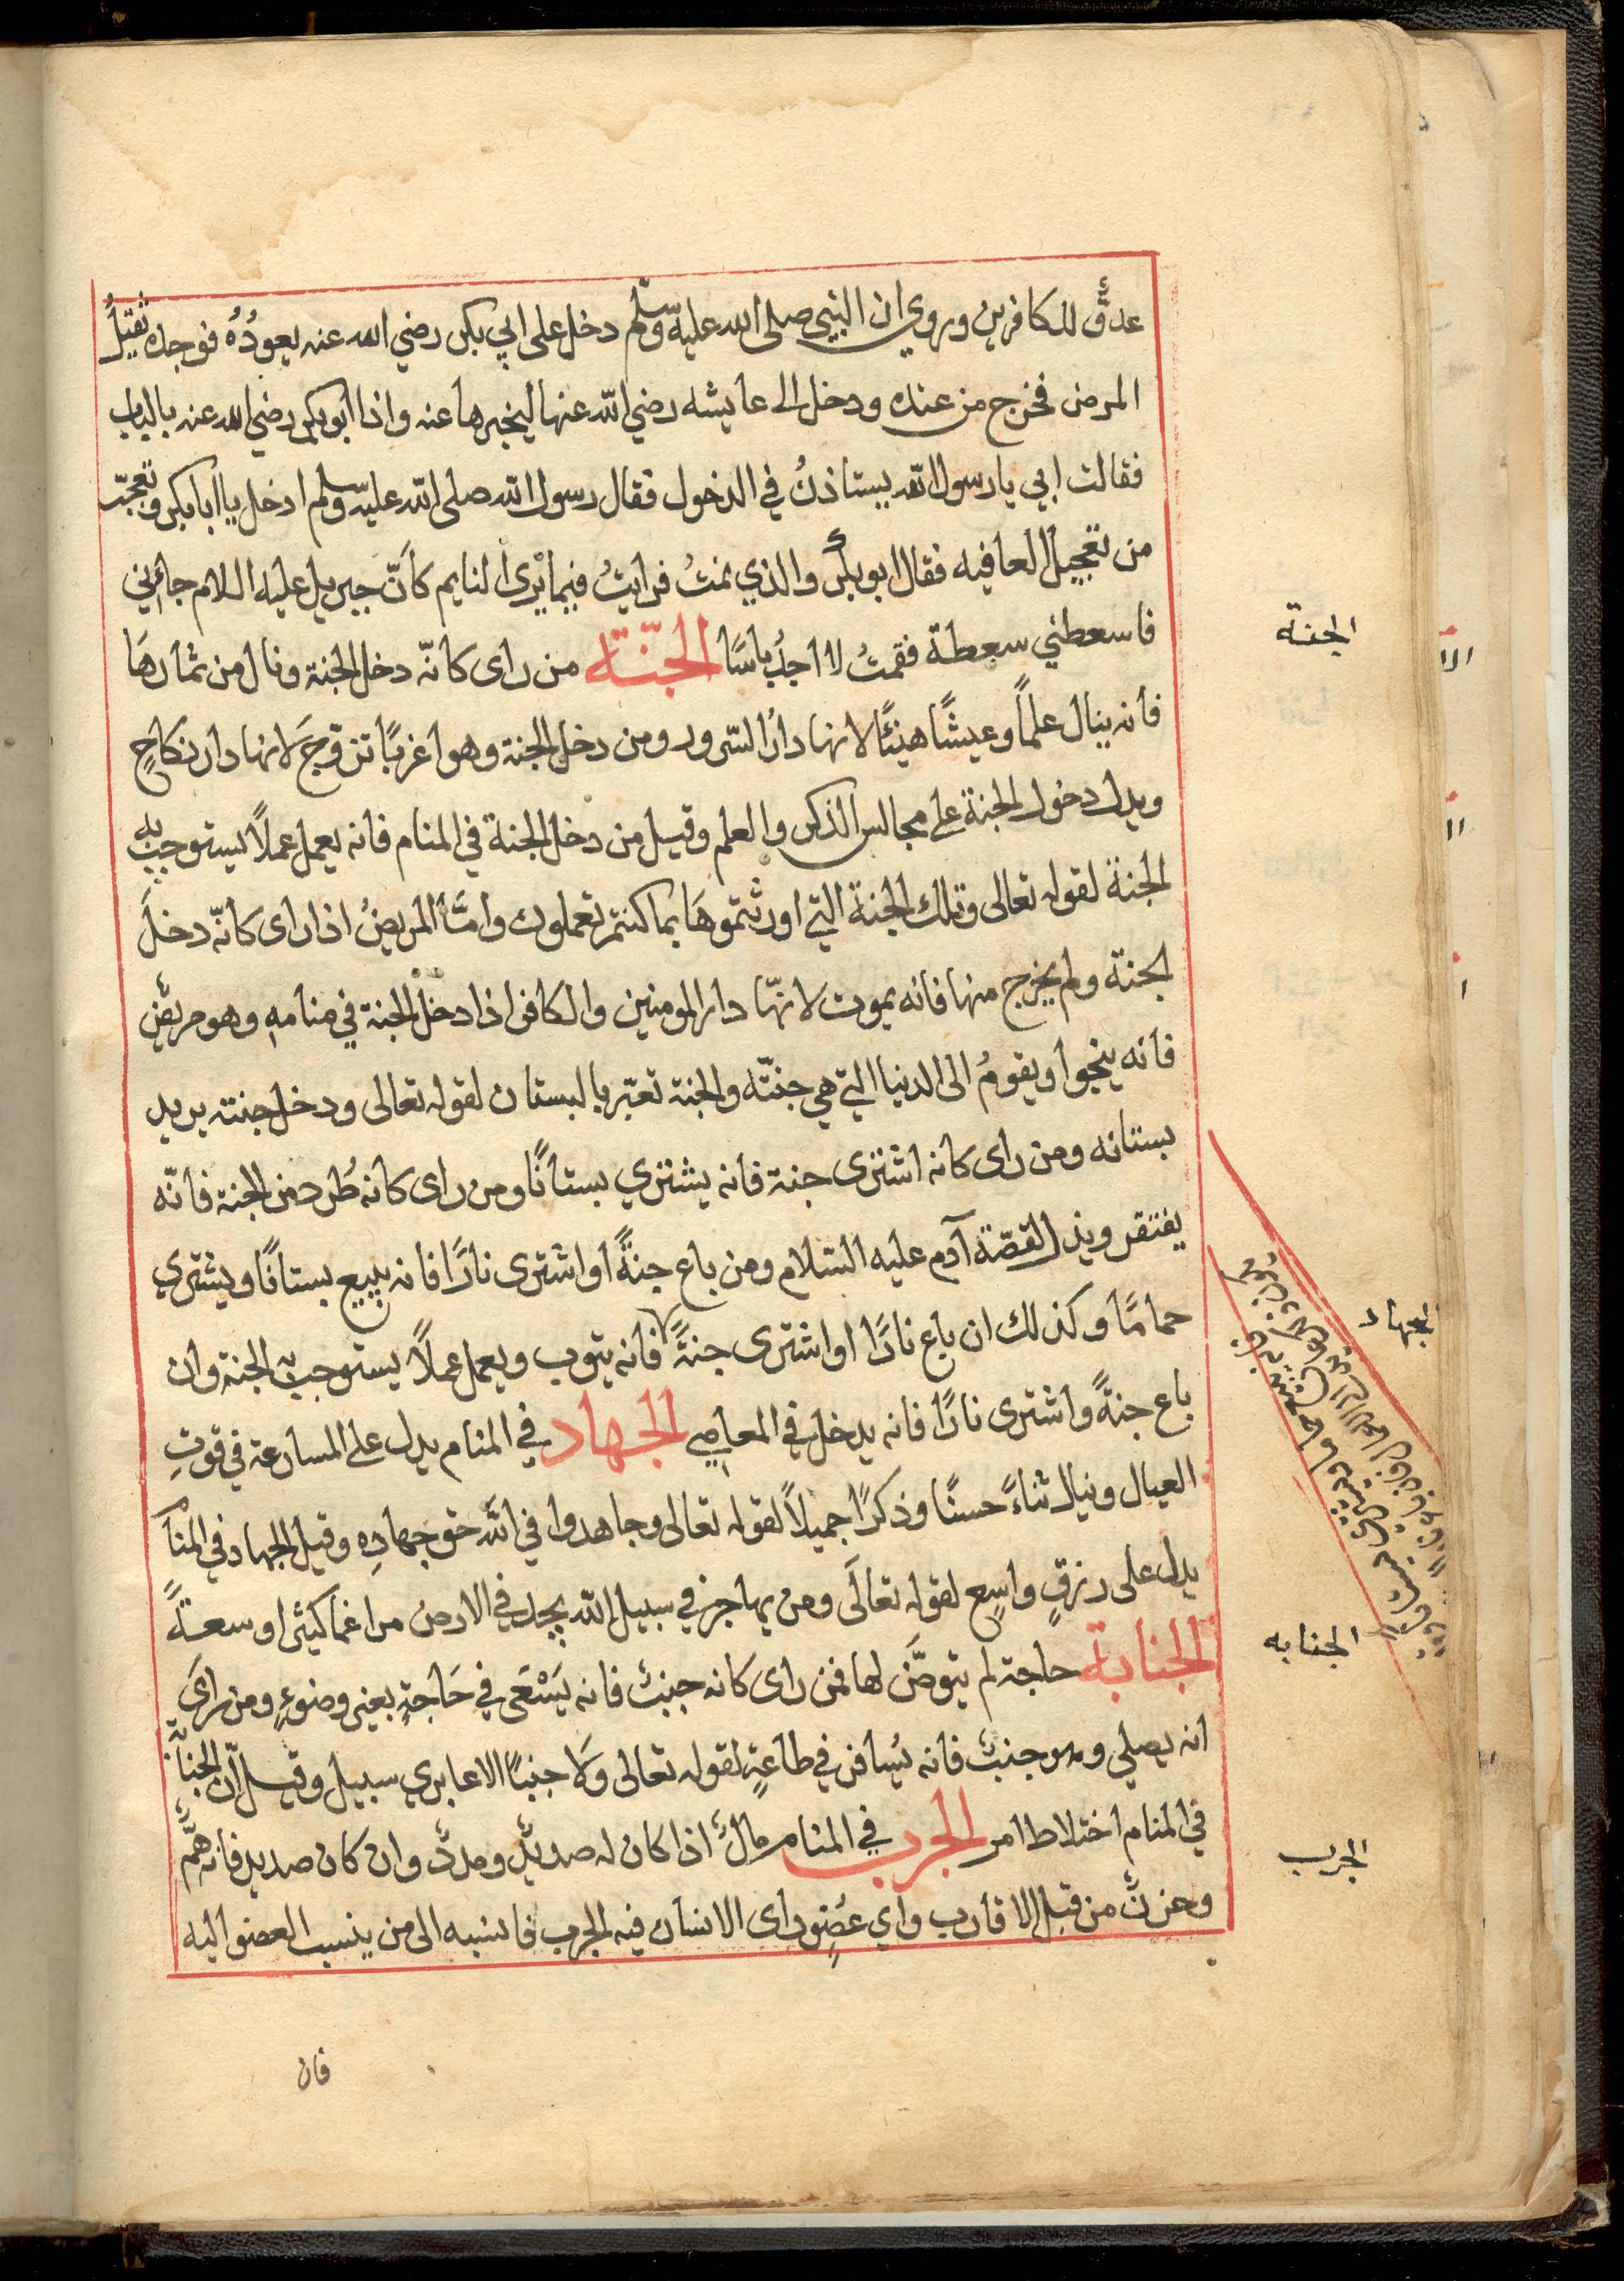 عدوٌّ للكافرين وروي ان النبي صلى الله عليه وسلّم دخل على ابي بكر رضي الله عنه يعودُهُ فوجده ثقيلُ
المرض فخرج من عنده ودخل الى عايشه رضي الله عنها ليخبرها عنه واذا ابو بكر رضي الله عنه بالباب
فقالت ابي يا رسول الله يستاذنُ في الدخول فقال رسول الله صلى الله عليه وسلم ادخل يا ابا بكر وتعجّب
من تعجيل العافيه فقال ابو بكر والذي نمتُ فرايتُ فيما يرى النايم كانّ جبريل عليه السلام جاءني
فاسعطني سعطة فقمتُ لا اجدُ باسًا الجنّة من راى كانّه دخل الجنة ونال من ثمارها
فانه ينال علمًا وعيشًا هنيئًا لانها دارُ السّرور ومن دخل الجنة وهو اعزبًا تزوّجَ لانها دار نكاحٍ
ويدل دخول الجنة على مجالس الذكر والعلم وقيل من دخل الجنة في المنام فانه يعمل عملًا يستوجب به
الجنة لقوله تعالى وتلك الجنة التي اورثتموها بما كنتم تعملون وامّا المريضُ اذا راى كانّه دخلَ
الجنة ولم يخرج منها فانه يموت لانّها دار المومنين والكافر اذا دخل الجنة في منامهِ وهو مريضٌ
فانه ينجوا ويقومُ الى الدنيا التي هي جنتّه والجنة تعبّر بالبستان لقوله تعالى ودخل جنته يريد
بستانه ومن راى كانه اشترى جنة فانه يشتري بستانًا ومن راى كانه طُرد من الجنة فانّه
يفتقر ويذل لقصّة آدم عليه السّلام ومن باع جنةً او اشترى نارًا فانه يبيع بستانًا ويشتري
حمامًا وكذلك ان باع نارًا او اشترى جنةً فانه يتوب ويعمل عملًا يستوجب به الجنة وان
باع جنةً واشترى نارًا فانه يدخل في المعاصي الجهاد في المنام يدل على المسارعة في قوتِ
العيال وينال ثناءً حسنًا وذكرًا جميلًا لقوله تعالى وجاهدوا في الله حق جهادِه وقيل الجهاد في المنام
يدل على رزقٍ واسعٍ لقوله تعالَى ومن يهاجر في سبيل الله يجد في الارض مراغما كثيرا وسعةً
الجنابة حاجة لم يتوضّئ لها فمن راى كانه جنبٌ فانه يَسْعَى في حَاجةٍ بغير وضوءٍ ومن رايَ
انه يصلي وهو جنبٌ فانه يُسافر في طاعةٍ لقوله تعالى وَلا جنبًا الا عابري سبيل وقيل انّ الجنابة
في المنام اختلاط امر الجرب في المنام مالٌ اذا كان له صديدٌ ومدّة وان كان صديد فانه همٌّ
وحزنٌ من قبل الاقارب واي عضوٍ راى الانسان فيه الجرب فانسبه الى من ينسب العضو اليه
فان
الجنة
الجهاد
الجنابه
الجرب